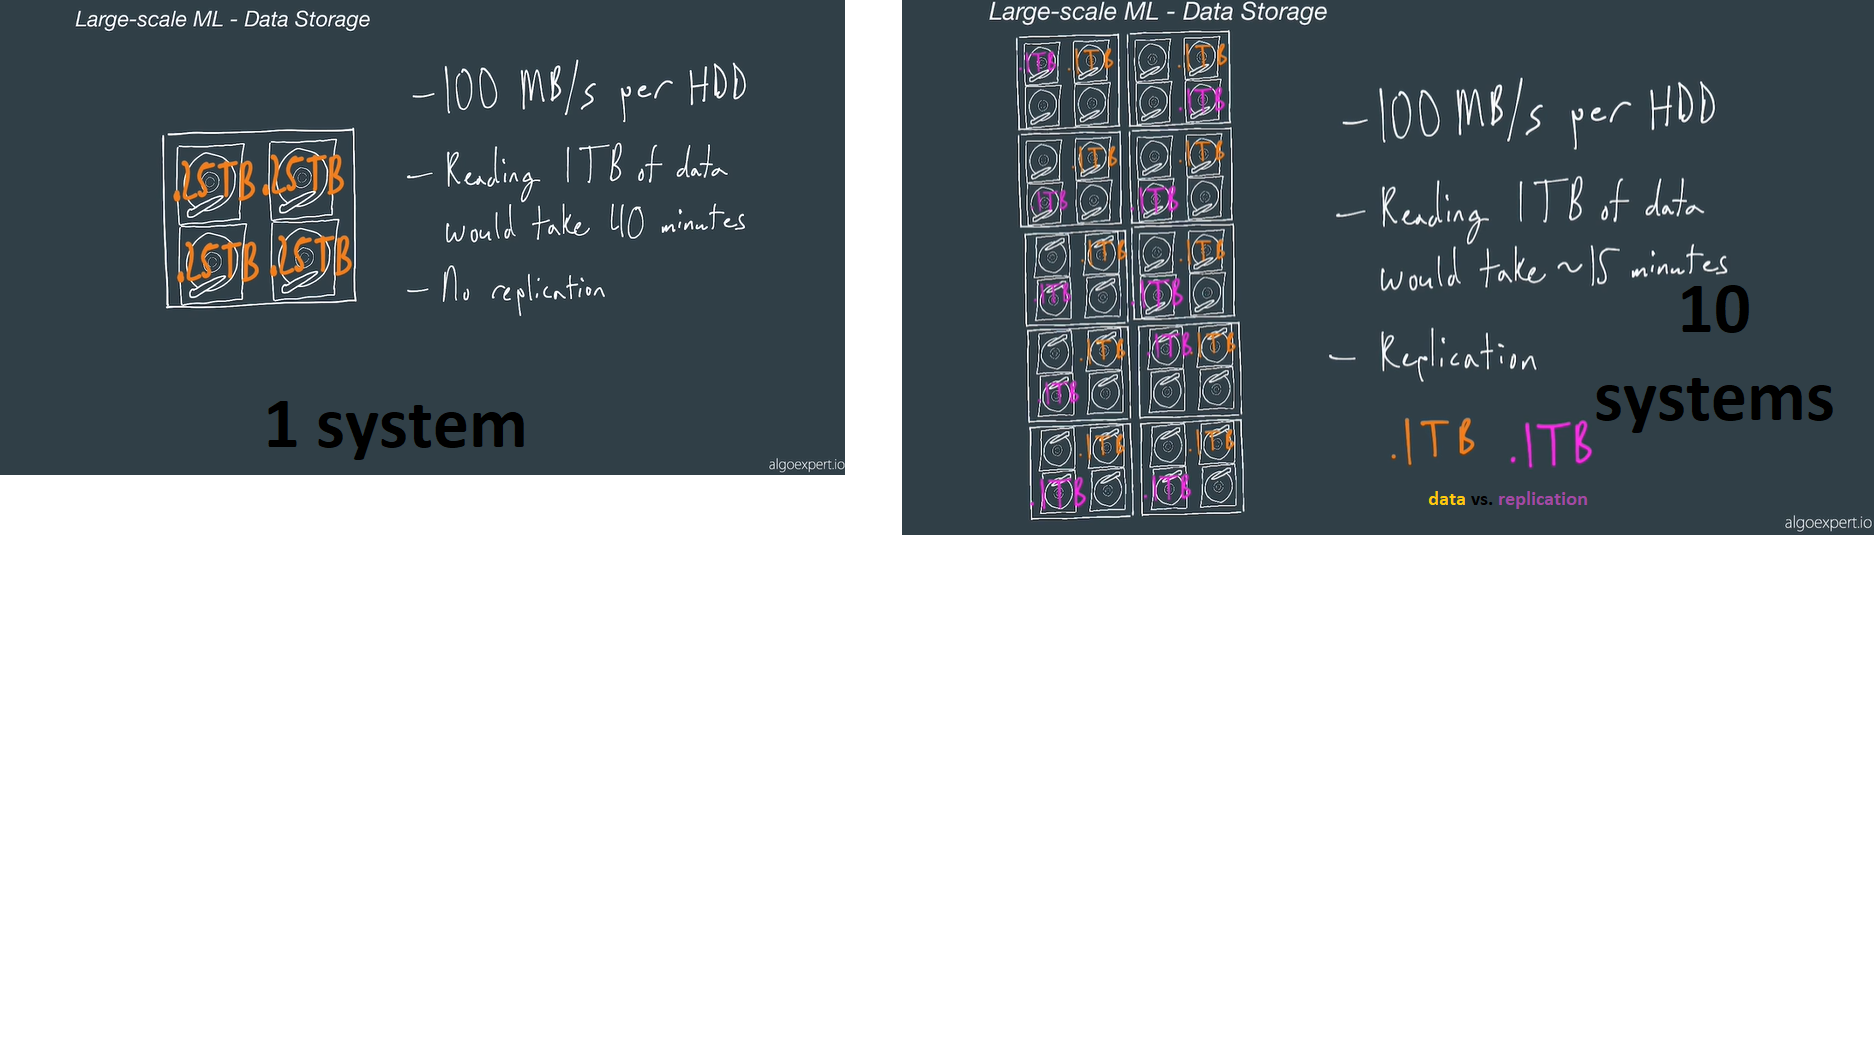 Large-scale ML - Data Storage
-100 MB/s per HDD
- Reading 1TB of data
would take 40 minutes
- No replication
.25TB .25TB
.25TB .25TB
1 system
algoexpert.io
Large-scale ML - Data Storage
.1TB .1TB .1TB
.1TB
.1TB .1TB
.1TB .1TB
.1TB .1TB
.1TB .1TB
.1TB .1TB .1TB
.1TB
.1TB .1TB
.1TB .1TB
-100 MB/s per HDD
- Reading 1TB of data
would take ~15 minutes
- Replication
10
systems
.1TB .1TB
data vs. replication
algoexpert.io